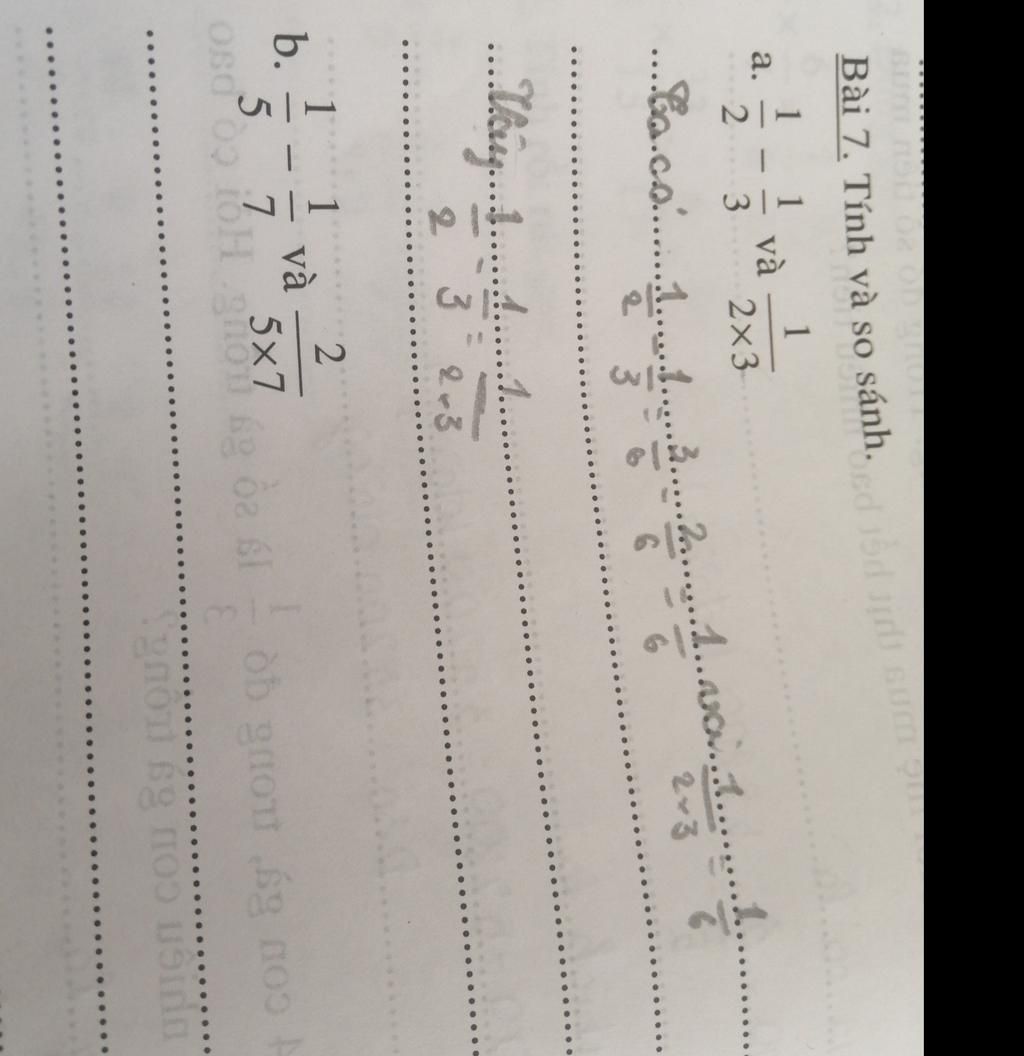 Bài 7. Tính và so sánh.
a. 1/2 - 1/3 và 1/2×3
Ta có 1/2 - 1/3 = 3/6 - 2/6 = 1/6 và 1/2×3 = 1/6
Vậy 1/2 - 1/3 = 1/2×3
b. 1/5 - 1/7 và 2/5×7